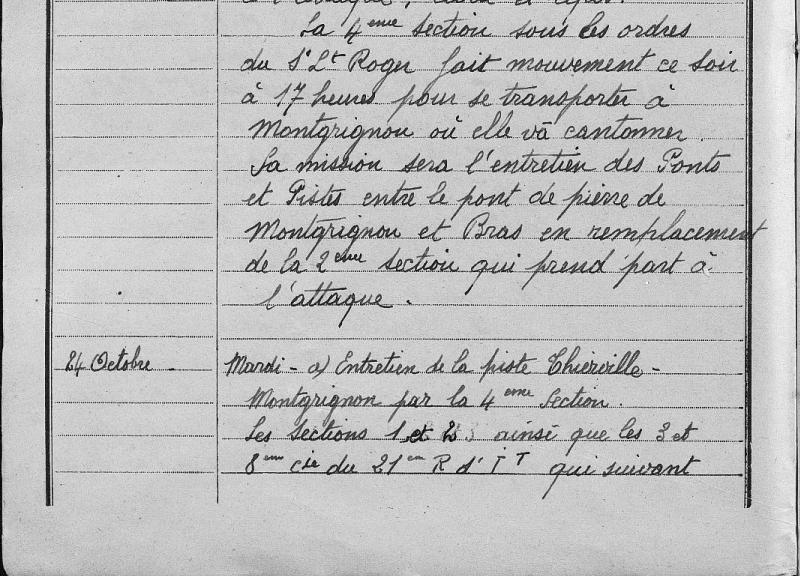 La 4eme Section sous les ordres
du St Lt Roger fait mouvement ce soir
à 17 heures pour se transporter à
Montgrignon où elle va cantonner.
Sa mission sera l'entretien des Ponts
et Pistes entre le pont de pierre de
Montgrignon et Bras en remplacement
de la 2eme Section qui prend part à
l'attaque.
24 Octobre. Mardi - a) Entretien de la piste Thierville -
Montgrignon par la 4eme Section.
Les Sections 1 et ainsi que les 3 et
8eme Cie du 21em R d'I T qui suivant